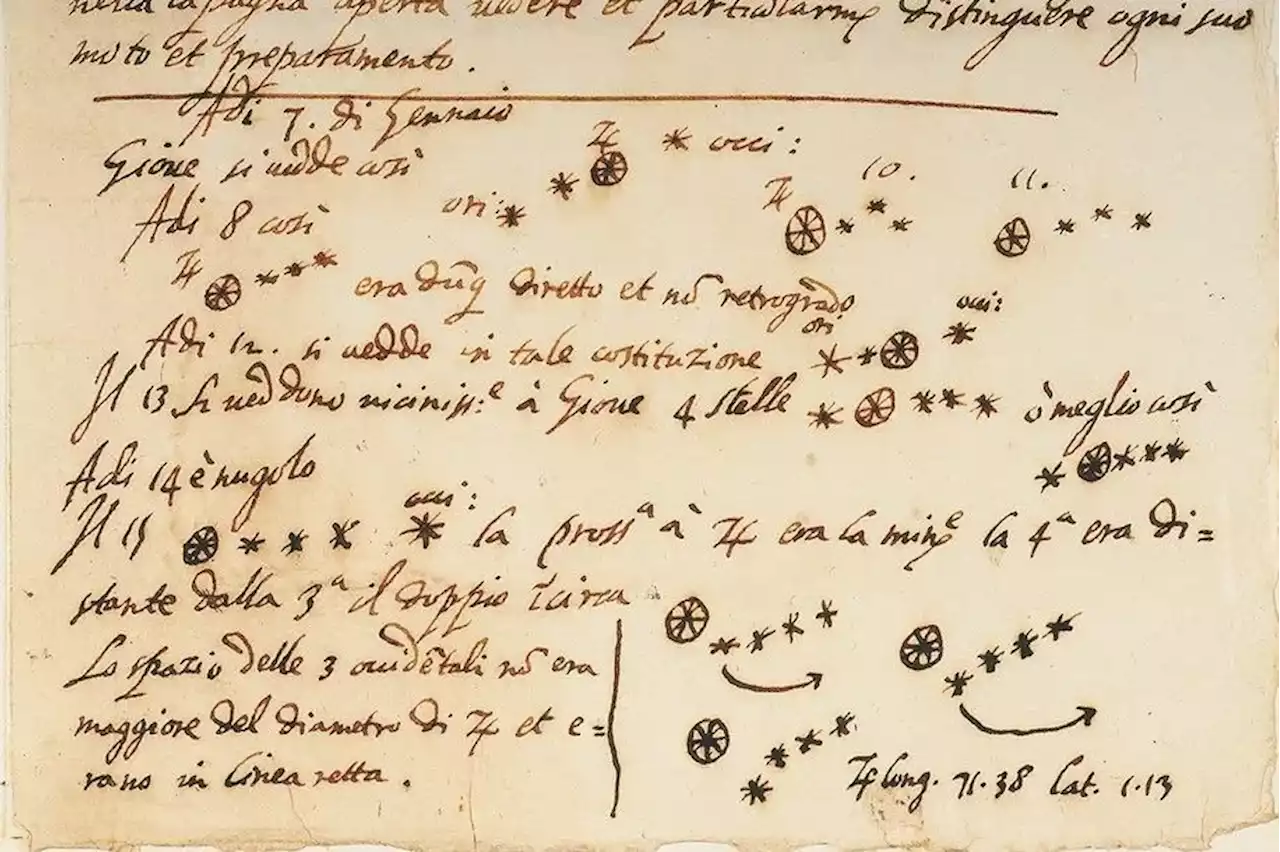 nella capagna aperta vedere et particularmẽ distinguere ogni suo
moto et preparamento.
Adi 7. di Gennaio
Giove si vedde così ♃ occi:
Adi 8 così ori: ♃ 10. 11.
♃ era dũq diretto et nõ retrogrado
ori occi:
Adi 12. si vedde in tale costituzione
Il 13 si veddono viciniss.e à Giove 4 stelle ò meglio così
Adi 14 è nugolo
occi:
Il 15 la prossa à ♃ era la mine la 4a era di=
stante dalla 3a il doppio ĩcirca
Lo spazio delle 3 occidẽtali nõ era
maggiore del diametro di ♃ et e=
rano in linea retta.
♃ long. 71.38 lat. 1.13